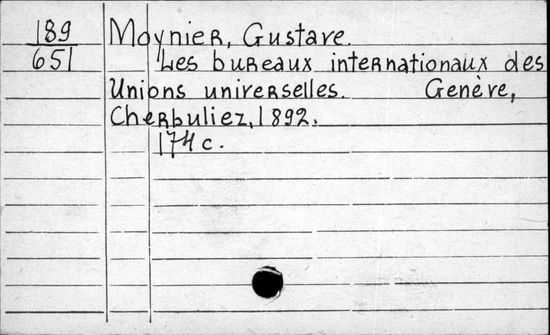 189 Moynier, Gustave.
651 Les bureaux internationaux des
Unions universelles. Genève,
Cherbuliez, 1892.
174 c.